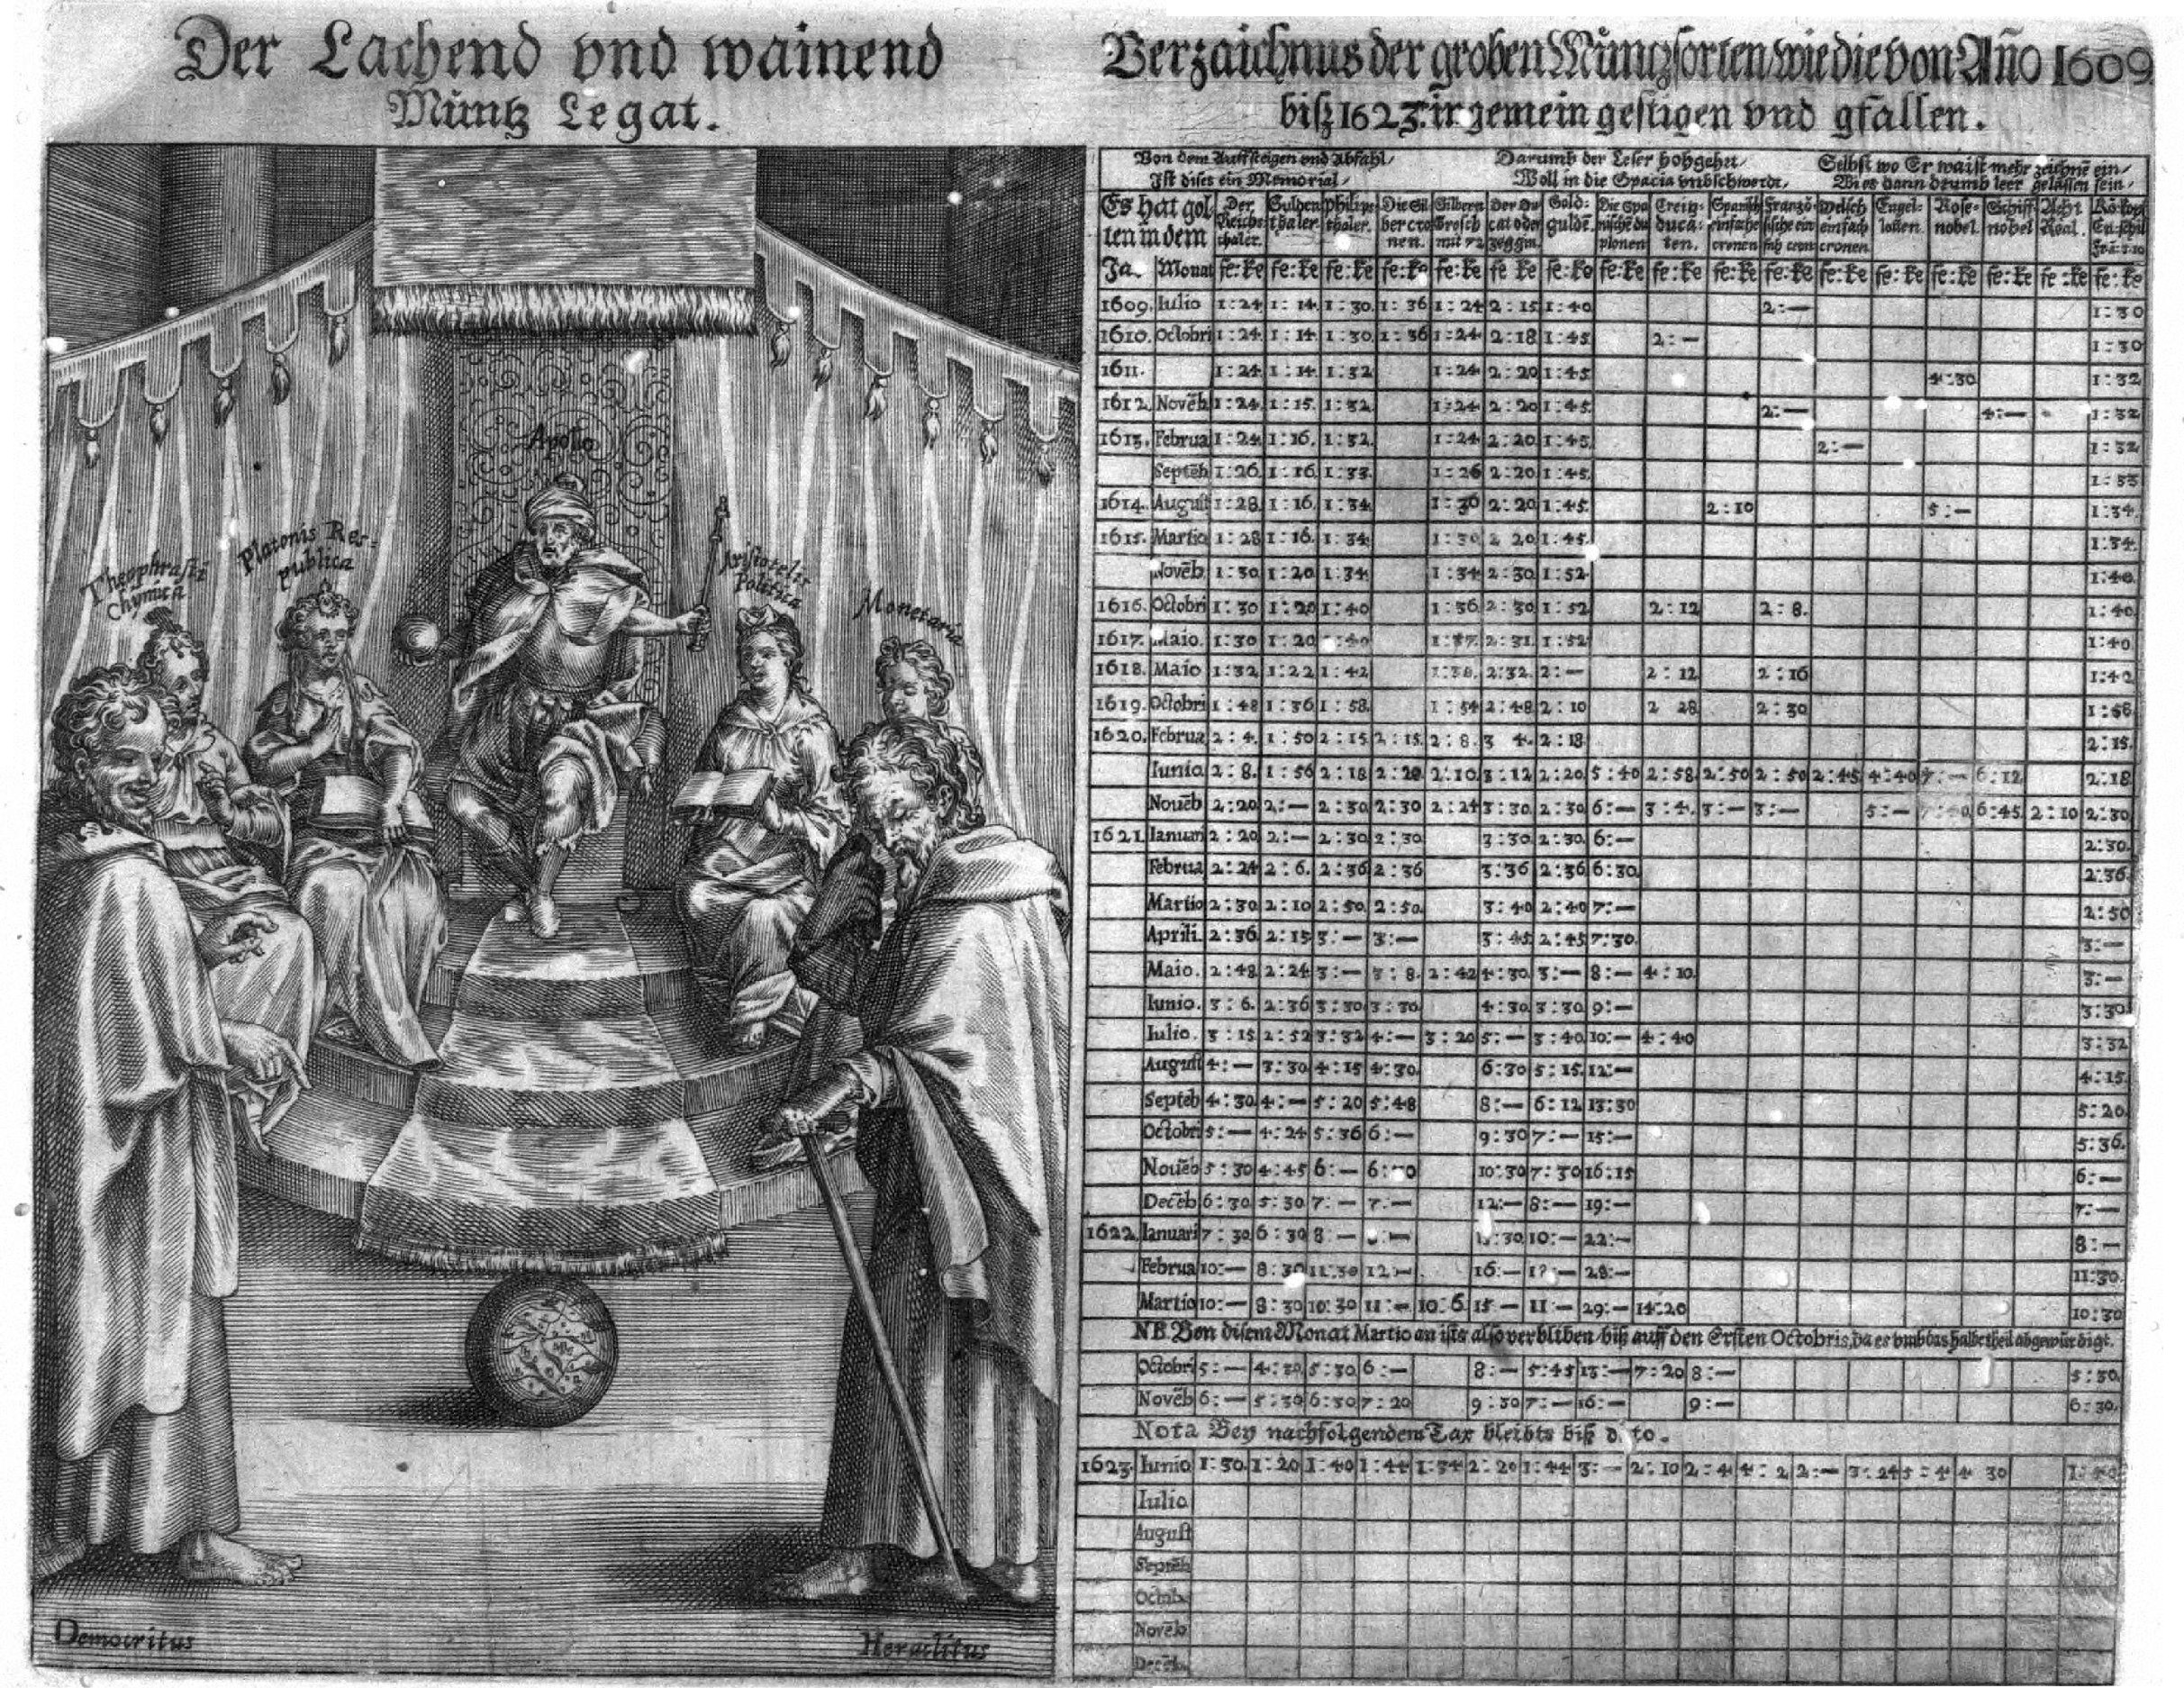 Der Lachend vnd wainend
Müntz Legat.
Apollo
Theophrasti
chimica
Platonis Res-
publica
Aristotelis
Politica
Monetaria
Democritus
Heraclitus
Verzaichnus der groben Müntzsorten wie die von Año 1609
biß 1623. in gemein gestigen vnd gfallen.
Von dem Auffsteigen vnd Abfahl,
Ist dises ein Memorial,
Darumb der Leser
Woll in die Spacia vnbschwerdt,
Selbst wo Er waist mehr zeichnē ein,
Wie es dann drumb leer gelassen sein.
Es hat gol
ten in dem
Der Reichs thaler. Gulden thaler. Philips thaler. Die Sil ber cro nen. Silbern Grosch mit 72 Der Du cat oder zeggin. Gold- guldē. Die Spa nische du plonen Creitz- duca- ten. Spanisch einfache cronen Franzö sische ein fach cron Welsch einfach cronen. Engel- lotten. Rose- nobel. Schiff nobel Acht Real.
Ja. Monat fe: ke fe: ke fe: ke fe: ke fe: ke fe ke fe: ke fe: ke fe: ke fe: ke fe: ke fe: ke fe: ke fe: ke fe: ke fe: ke fe: ke
1609. Iulio 1:24 1:14 1:30 1:36 1:24 2:15 1:40 2:— 1:30
1610. Octobri 1:24 1:14 1:30 1:36 1:24 2:18 1:45 2:— 1:30
1611. 1:24 1:14 1:32 1:24 2:20 1:45 4:30 1:32
1612. Novēb 1:24 1:15 1:32 1:24 2:20 1:45 2:— 4:— 1:32
1613. Februa 1:24 1:16 1:32 1:24 2:20 1:45 2:— 1:32
Septēb 1:26 1:16 1:33 1:26 2:20 1:45 1:33
1614. August 1:28 1:16 1:34 1:30 2:20 1:45 2:10 5:— 1:34
1615. Martio 1:28 1:16 1:34 1:30 2 20 1:45 1:34
Novēb 1:30 1:20 1:34 1:34 2:30 1:52 1:40
1616. Octobri 1:30 1:20 1:40 1:36 2:30 1:52 2:12 2:8. 1:40
1617. Maio. 1:30 1:20 1:37 2:31 1:52 1:40
1618. Maio 1:32 1:22 1:42 2:32 2:— 2:12 2:16 1:42
1619. Octobri 1:48 1:36 1:58 1:54 2:48 2:10 2 28 2:30 1:58
1620. Februa 2:4. 1:50 2:15 2:15 2:8. 3 4. 2:18 2:15
Iunio 2:8. 1:56 2:18 2:20 2:10 3:12 2:20 5:40 2:58 2:50 2:50 2:45 4:40 7:— 6:12 2:18
Nouēb 2:20 2:— 2:30 2:30 2:24 3:30 2:30 6:— 3:4. 3:— 3:— 5:— 6:45 2:10 2:30
1621. Ianuari 2:20 2:— 2:30 2:30 3:30 2:30 6:— 2:30
Februa 2:24 2:6. 2:36 2:36 3:36 2:36 6:30 2:36
Martio 2:30 2:10 2:50 2:50 3:40 2:40 7:— 2:50
Aprili. 2:36 2:15 3:— 3:— 3:45 2:45 7:30 3:—
Maio. 2:48 2:24 3:— 3:8. 2:42 4:30 3:— 8:— 4:10 3:—
Iunio. 3:6. 2:36 3:30 3:30 4:30 3:30 9:— 3:30
Iulio. 3:15 2:52 3:32 4:— 3:20 5:— 3:40 10:— 4:40 3:32
August 4:— 3:30 4:15 4:30 6:30 5:15 12:— 4:15
Septēb 4:30 4:— 5:20 5:48 8:— 6:12 13:30 5:20
Octobri 5:— 4:24 5:36 6:— 9:30 7:— 15:— 5:36
Nouēb 5:30 4:45 6:— 6:30 10:30 7:30 16:15 6:—
Decēb 6:30 5:30 7:— 7:— 12:— 8:— 19:— 7:—
1622. Ianuari 7:30 6:30 8:— 10:— 22:— 8:—
Februa 10:— 8:30 11:30 12:— 16:— 28:— 11:30
Martio 10:— 8:30 10:30 11:— 10:6 15— 11:— 29:— 14:20 10:30
NB. Von disem Monat Martio an ists also verbliben biß auff den Ersten Octobris, da es vmb das halbe theil abgewürdigt.
Octobri 5:— 4:30 5:30 6:— 8:— 5:45 13:— 7:20 8:— 5:30
Novēb 6:— 5:30 6:30 7:20 9:30 7:— 16:— 9:— 6:30
Nota Bey nachfolgendem Tax bleibts biß dito.
1623. Iunio 1:30 1:20 1:40 1:44 1:34 2:20 1:44 3:— 2:10 2:4 2:— 3:24 5:4 4 30
Iulio
August
Septēb
Octob.
Novēb
Decēb.